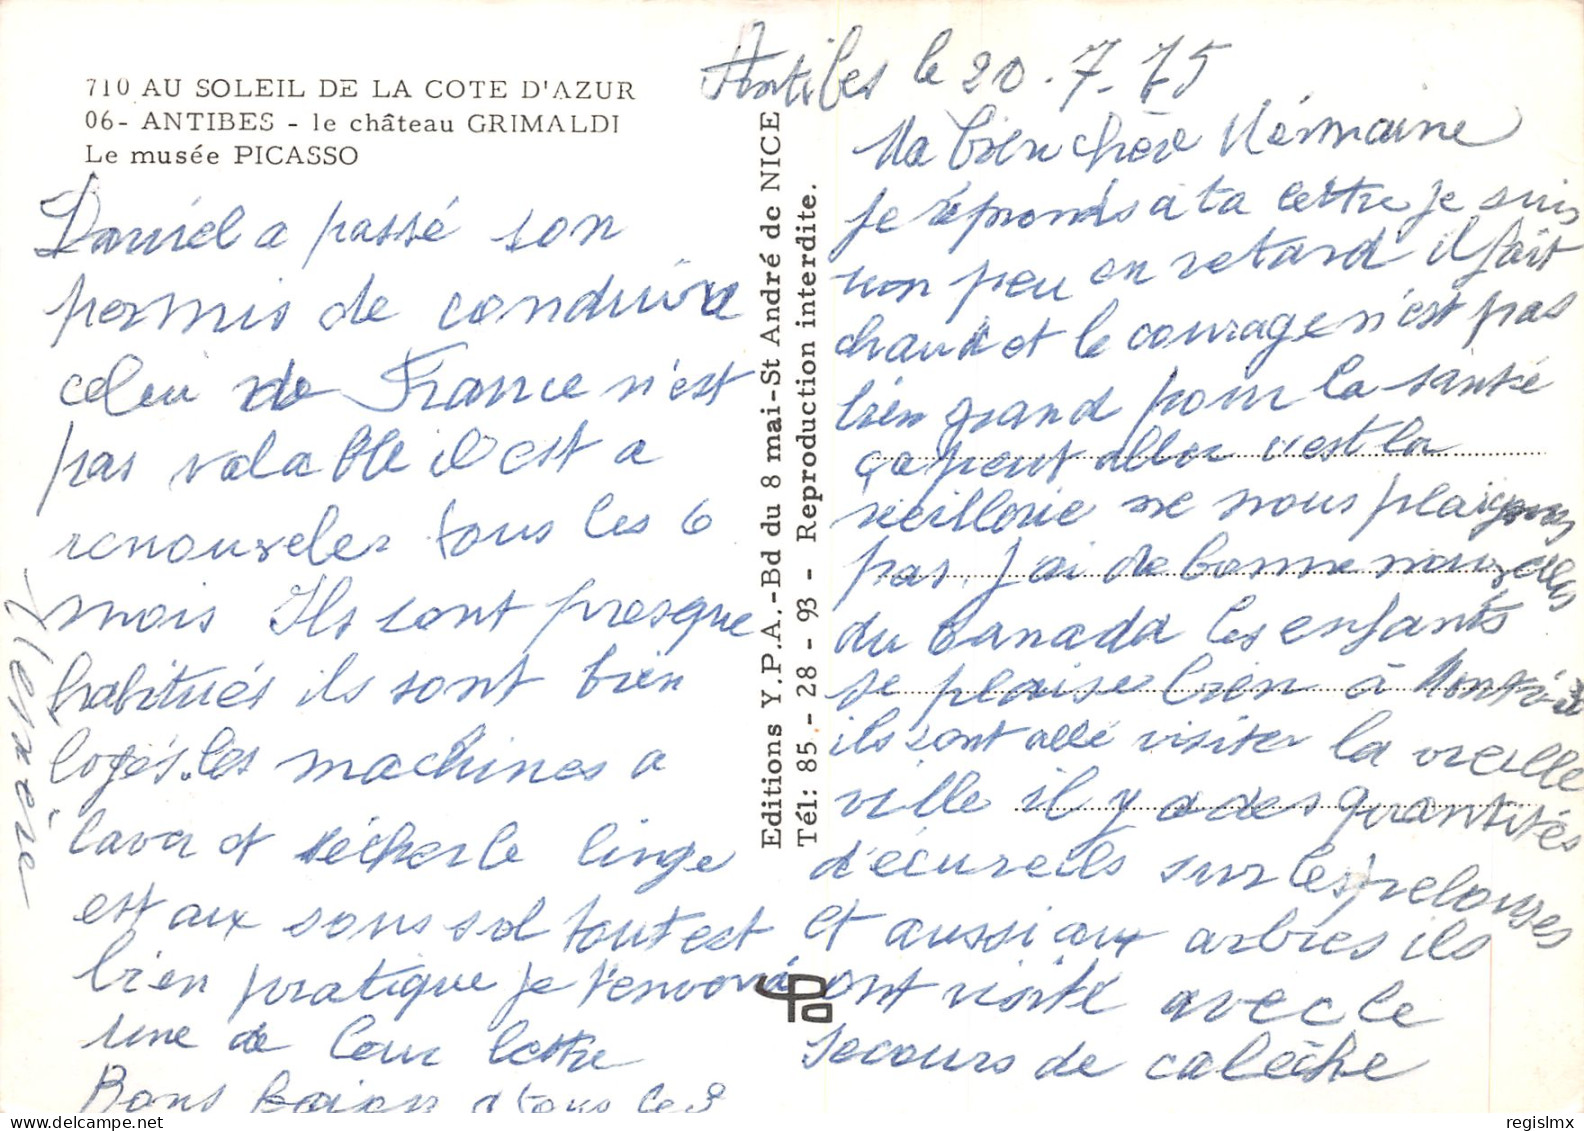 710 AU SOLEIL DE LA COTE D'AZUR
06- ANTIBES - le château GRIMALDI
Le musée PICASSO
Antibes le 20.7.75
Ma bien chère Nérmaine
je réponds a ta lettre je suis
un peu en retard il fait
chaud et le courage n'est pas
bien grand pour la santé
ça peut aller c'est la
ne nous plaignons
pas j'ai de bonne nouvelles
du Canada les enfants
se plaise bien à Montréal
ils sont allé visiter la vieille
ville il y a des quantités
d'écureuils sur les pelouses
et aussi aux arbres ils
ont visité avec le
secours de calèche
Daniel a passé son
permis de conduire
celui de France n'est
pas valable il est a
renouveler tous les 6
mois Ils sont presque
habitués ils sont bien
logés. les machines a
laver et sécher le linge
est aux sous sol tout est
bien pratique je t'envoie
une de leur lettre
Bons Baisers a tous les 3
Editions Y.P.A.-Bd du 8 mai-St André de NICE
Tél: 85 - 28 - 93 - Reproduction interdite.
regislmx